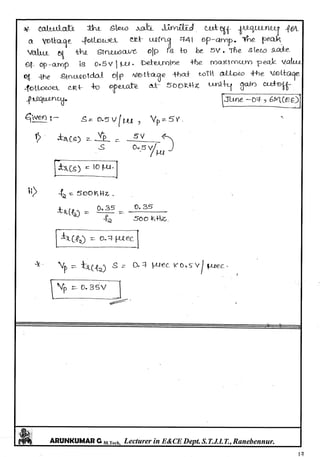 * calculate the slew rate limited cutoff frequency for
a voltage follower ckt using 741 op-amp. The peak
value of the sinewave o/p is to be 5V. The slew rate
of op-amp is 0.5V/µs. Determine the maximum peak value
of the sinusoidal o/p voltage that will allow the voltage
follower ckt to operate at 500kHz unity gain cutoff-
frequency.
June-07, 6M(EE)
Given:- S = 0.5 V/µs, Vp = 5V.
i) tr(s) = Vp/S = 5V / 0.5V/µs
tr(s) = 10 µs.
ii) f2 = 500KHz.
tr(f2) = 0.35/f2 = 0.35/500 KHz.
tr(f2) = 0.7 µsec
* Vp = tr(f2) S = 0.7 µsec x 0.5 V/µsec.
Vp = 0.35V
ARUNKUMAR G M.Tech, Lecturer in E&CE Dept. S.T.J.I.T., Ranebennur.